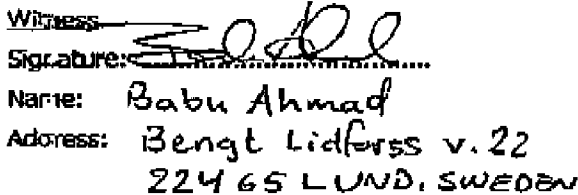 Witness
Signature:
Name: Babu Ahmad
Address: Bengt Lidforss v. 22
224 65 LUND, SWEDEN